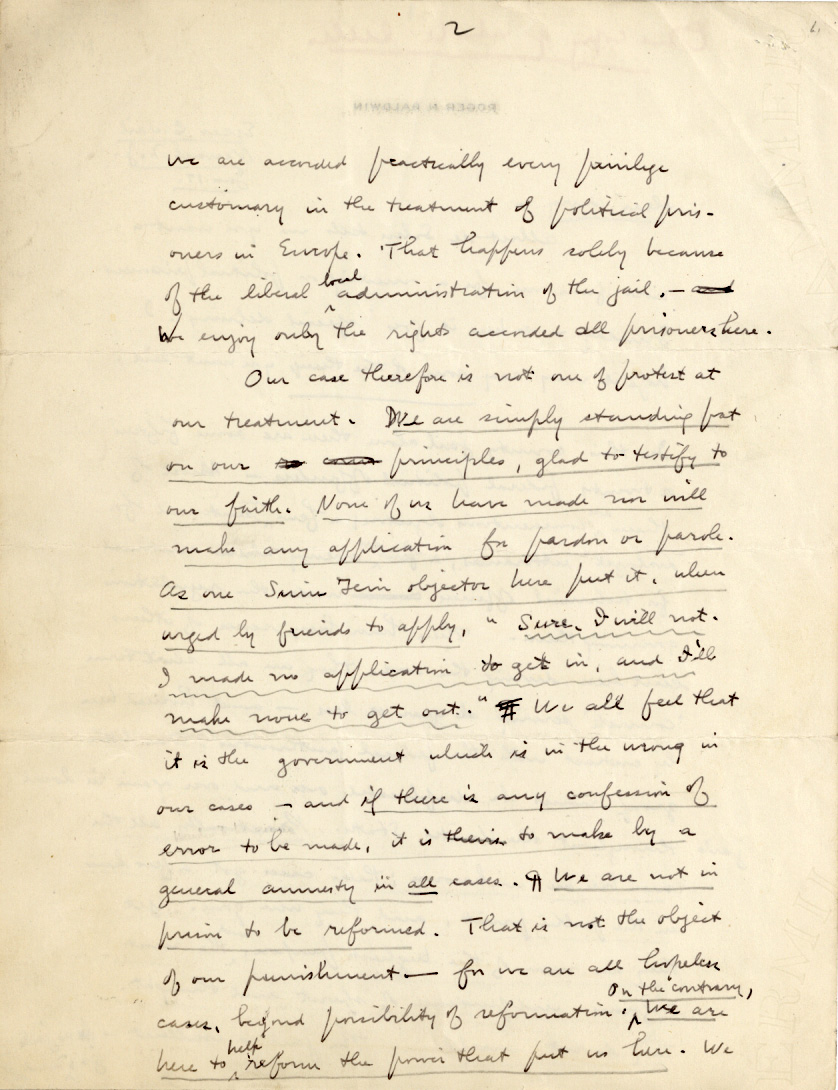 2
ROGER N BALDWIN
we are accorded practically every privilege
customary in the treatment of political pris-
oners in Europe. That happens solely because
of the liberal local administration of the jail. – and
We enjoy only the rights accorded all prisoners here.
Our case therefore is not one of protest at
our treatment. We are simply standing pat
on our principles, glad to testify to
our faith. None of us have made nor will
make any application for pardon or parole.
As one Sinn Fein objector here put it, when
urged by friends to apply, " Sure, I will not.
I made no application to get in, and I'll
make none to get out." ¶ We all feel that
it is the government which is in the wrong in
our cases – and if there is any confession of
error to be made, it is theirs to make by a
general amnesty in all cases. ¶ We are not in
prison to be reformed. That is not the object
of our punishment — for we are all hopeless
cases, beyond possibility of reformation. On the contrary, We are
here to help reform the power that put us here. We